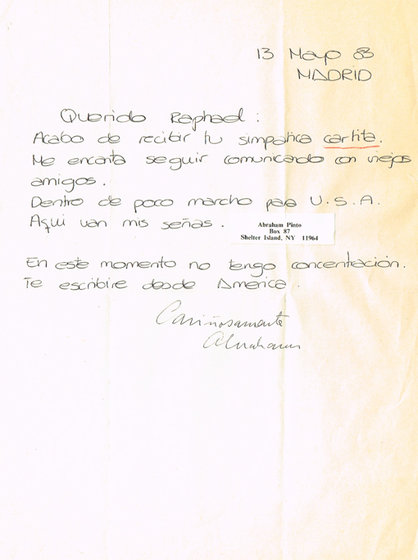 13 Mayo 83
MADRID
Querido Raphael :
Acabo de recibir tu simpatica cartita.
Me encanta seguir comunicando con viejos
amigos.
Dentro de poco marcho para U.S.A.
Aquí van mis señas.
Abraham Pinto
Box 87
Shelter Island, NY 11964
En este momento no tengo concentración.
Te escribire desde America.
Cariñosamente
Abraham